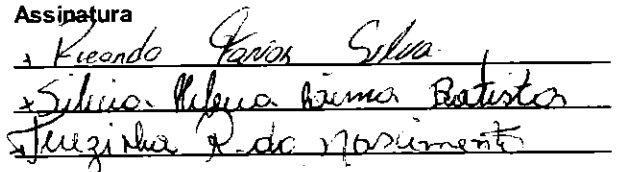 Assinatura
x Ricardo Farias Silva
x Silvia Helena Batista
x Terezinha R. do Nascimento